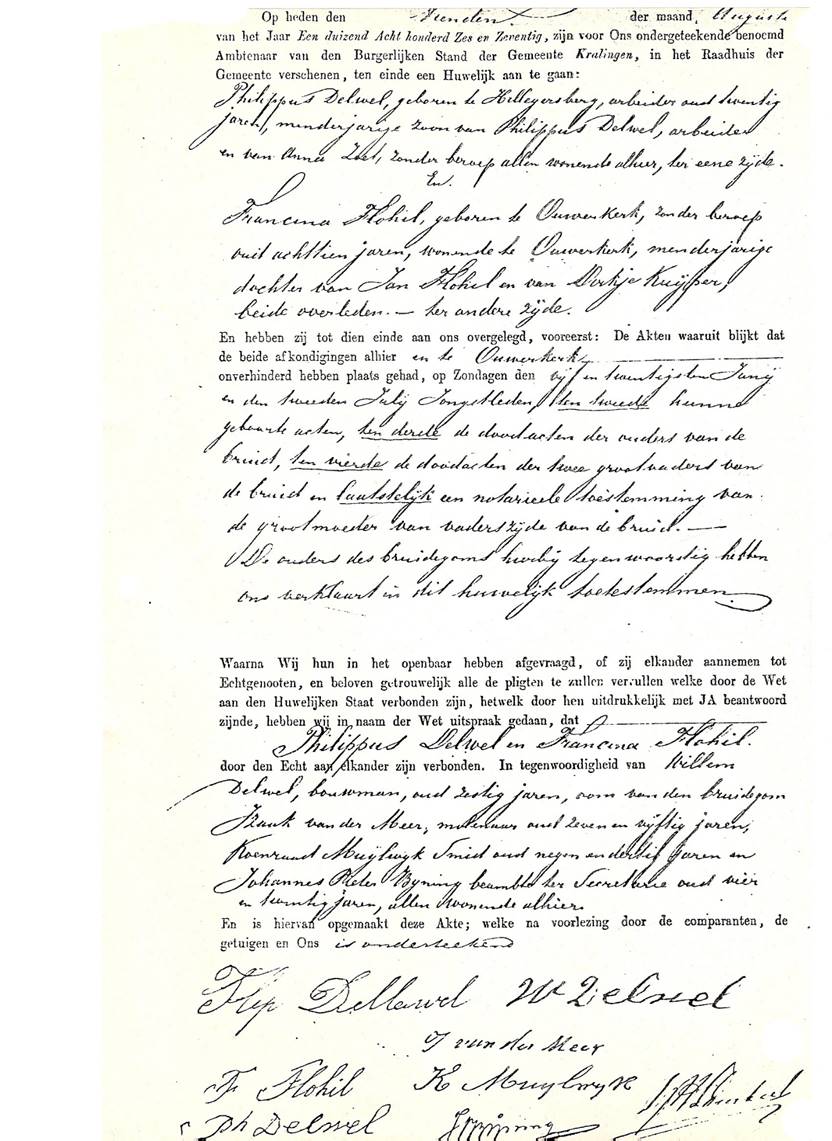 Op heden den tienden der maand, Augusti
van het Jaar Een duizend Acht honderd Zes en Zeventig, zijn voor Ons ondergeteekende benoemd
Ambtenaar van den Burgerlijken Stand der Gemeente Kralingen, in het Raadhuis der
Gemeente verschenen, ten einde een Huwelijk aan te gaan:
Philippus Delwel, geboren te Hillegersberg, arbeider oud twintig
jaren, menderjarige zoon van Philippus Delwel, arbeider
en van Anna Zoet, zonder beroep allen wonende alhier, ter eene zijde.
En.
Francina Flohil, geboren te Ouwerkerk, zonder beroep
oud achttien jaren, wonende te Ouwerkerk, menderjarige
dochter van Jan Flohil en van Dirkje Kuijper,
beide overleden. — ter andere zijde.
En hebben zij tot dien einde aan ons overgelegd, vooreerst: De Akten waaruit blijkt dat
de beide afkondigingen alhier en te Ouwerkerk
onverhinderd hebben plaats gehad, op Zondagen den vijf en twintigsten Junij
en den tweeden Julij Jongstleden, ten tweede hunne
geboorte acten, ten derde de doodacten der ouders van de
bruid, ten vierde de doodacten der twee grootvaders van
de bruid en laatstelijk een notarieele toestemming van
de grootmoeder van vaderszijde van de bruid. —
De ouders des bruidegoms hierbij tegenwoordig hebben
ons verklaart in dit huwelijk toetestemmen.
Waarna Wij hun in het openbaar hebben afgevraagd, of zij elkander aannemen tot
Echtgenooten, en beloven getrouwelijk alle de pligten te zullen vervullen welke door de Wet
aan den Huwelijken Staat verbonden zijn, hetwelk door hen uitdrukkelijk met JA beantwoord
zijnde, hebben wij in naam der Wet uitspraak gedaan, dat
Philippus Delwel en Francina Flohil.
door den Echt aan elkander zijn verbonden. In tegenwoordigheid van Willem
Delwel, bouwman, oud zestig jaren, oom van den bruidegom
Izaak van der Meer, molenaar oud zeven en vijftig jaren,
Koenraad Muijlwyk Smid oud negen en dertig jaren en
Johannes Pieter Byning beambte ter Secretarie oud vier
en twintig jaren, allen wonende alhier.
En is hiervan opgemaakt deze Akte; welke na voorlezing door de comparanten, de
getuigen en Ons is onderteekend
Flip Dellewel W Delwel
J van der Meer
F Flohil K Muylwyk
Ph Delwel